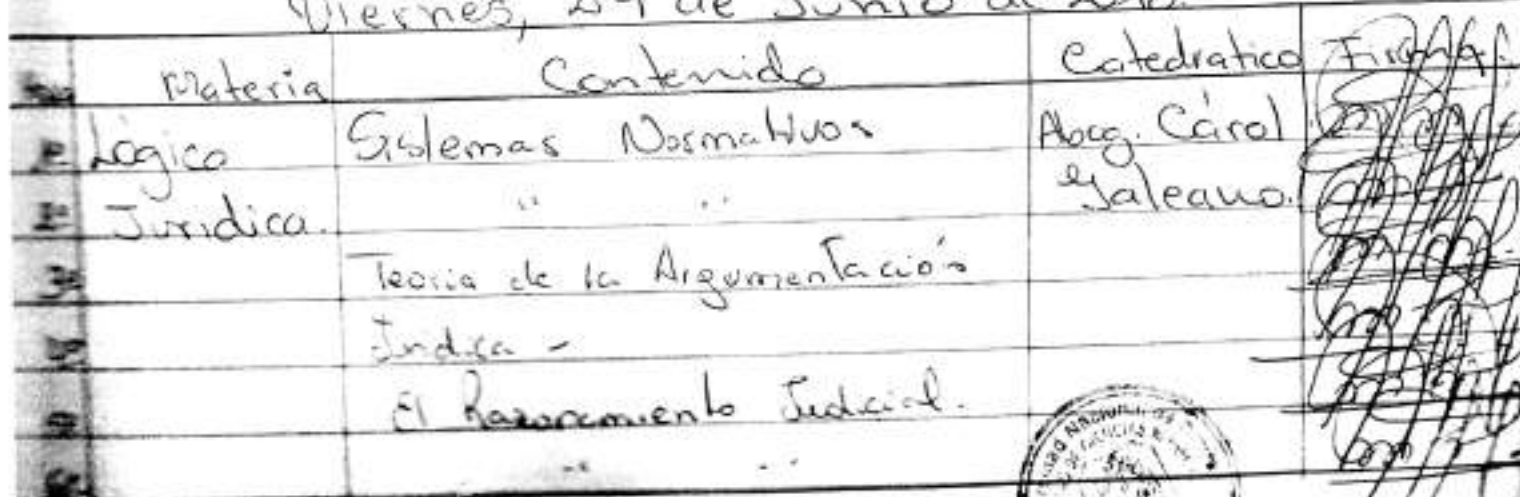 Viernes, de Junio
Materia Contenido Catedratico Firma
Lógica Sistemas Normativos Abog. Cárol
Juridica. " " Galeano.
Teoria de la Argumentación
Jurídica -
El Razonamiento Judicial.
" "